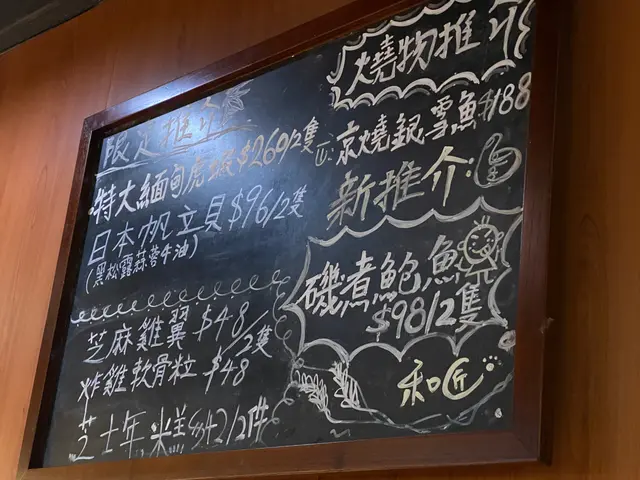 限定推介
特大緬甸虎蝦$260/2隻
日本帆立貝$96/2隻
(黑松露蒜蓉牛油)
芝麻雞翼 $48/2隻
炸雞軟骨粒 $48
芝士年糕 $42/2件
燒物推介
京燒銀雪魚$188
新推介:
磯煮鮑魚
$98/2隻
和匠